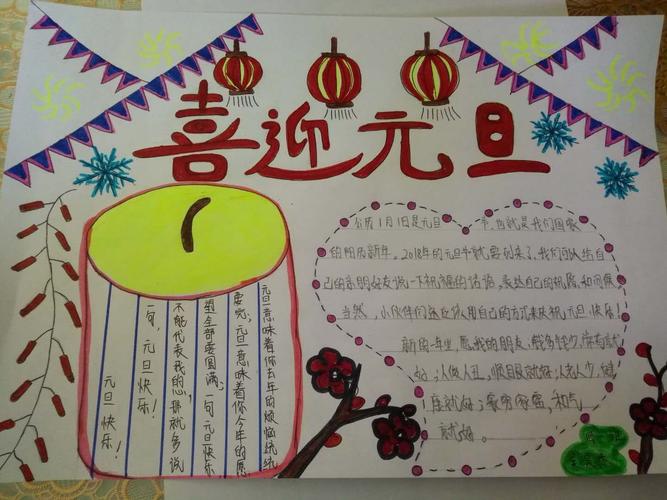 喜迎元旦
元旦意味着你去年的烦恼统统
要完,元旦意味着你今年的愿
望全部要圆满。一句元旦快乐
不能代表我的心,那就多说
一句,元旦快乐!
元旦快乐!
公历1月1日是元旦节,也就是我们国家
的阳历新年,2018年的元旦节就要到来了,我们可以给自
己的亲朋好友说一下祝福的话语,表达自己的祝愿和问候
当然,小伙伴们还应该用自己的方式来庆祝元旦快乐!
新的一年里,愿我的朋友:钱多钱少,常有就
好;人俊人丑,顺眼就好;人老人少,健
康就好;家穷家富,和气
就好。